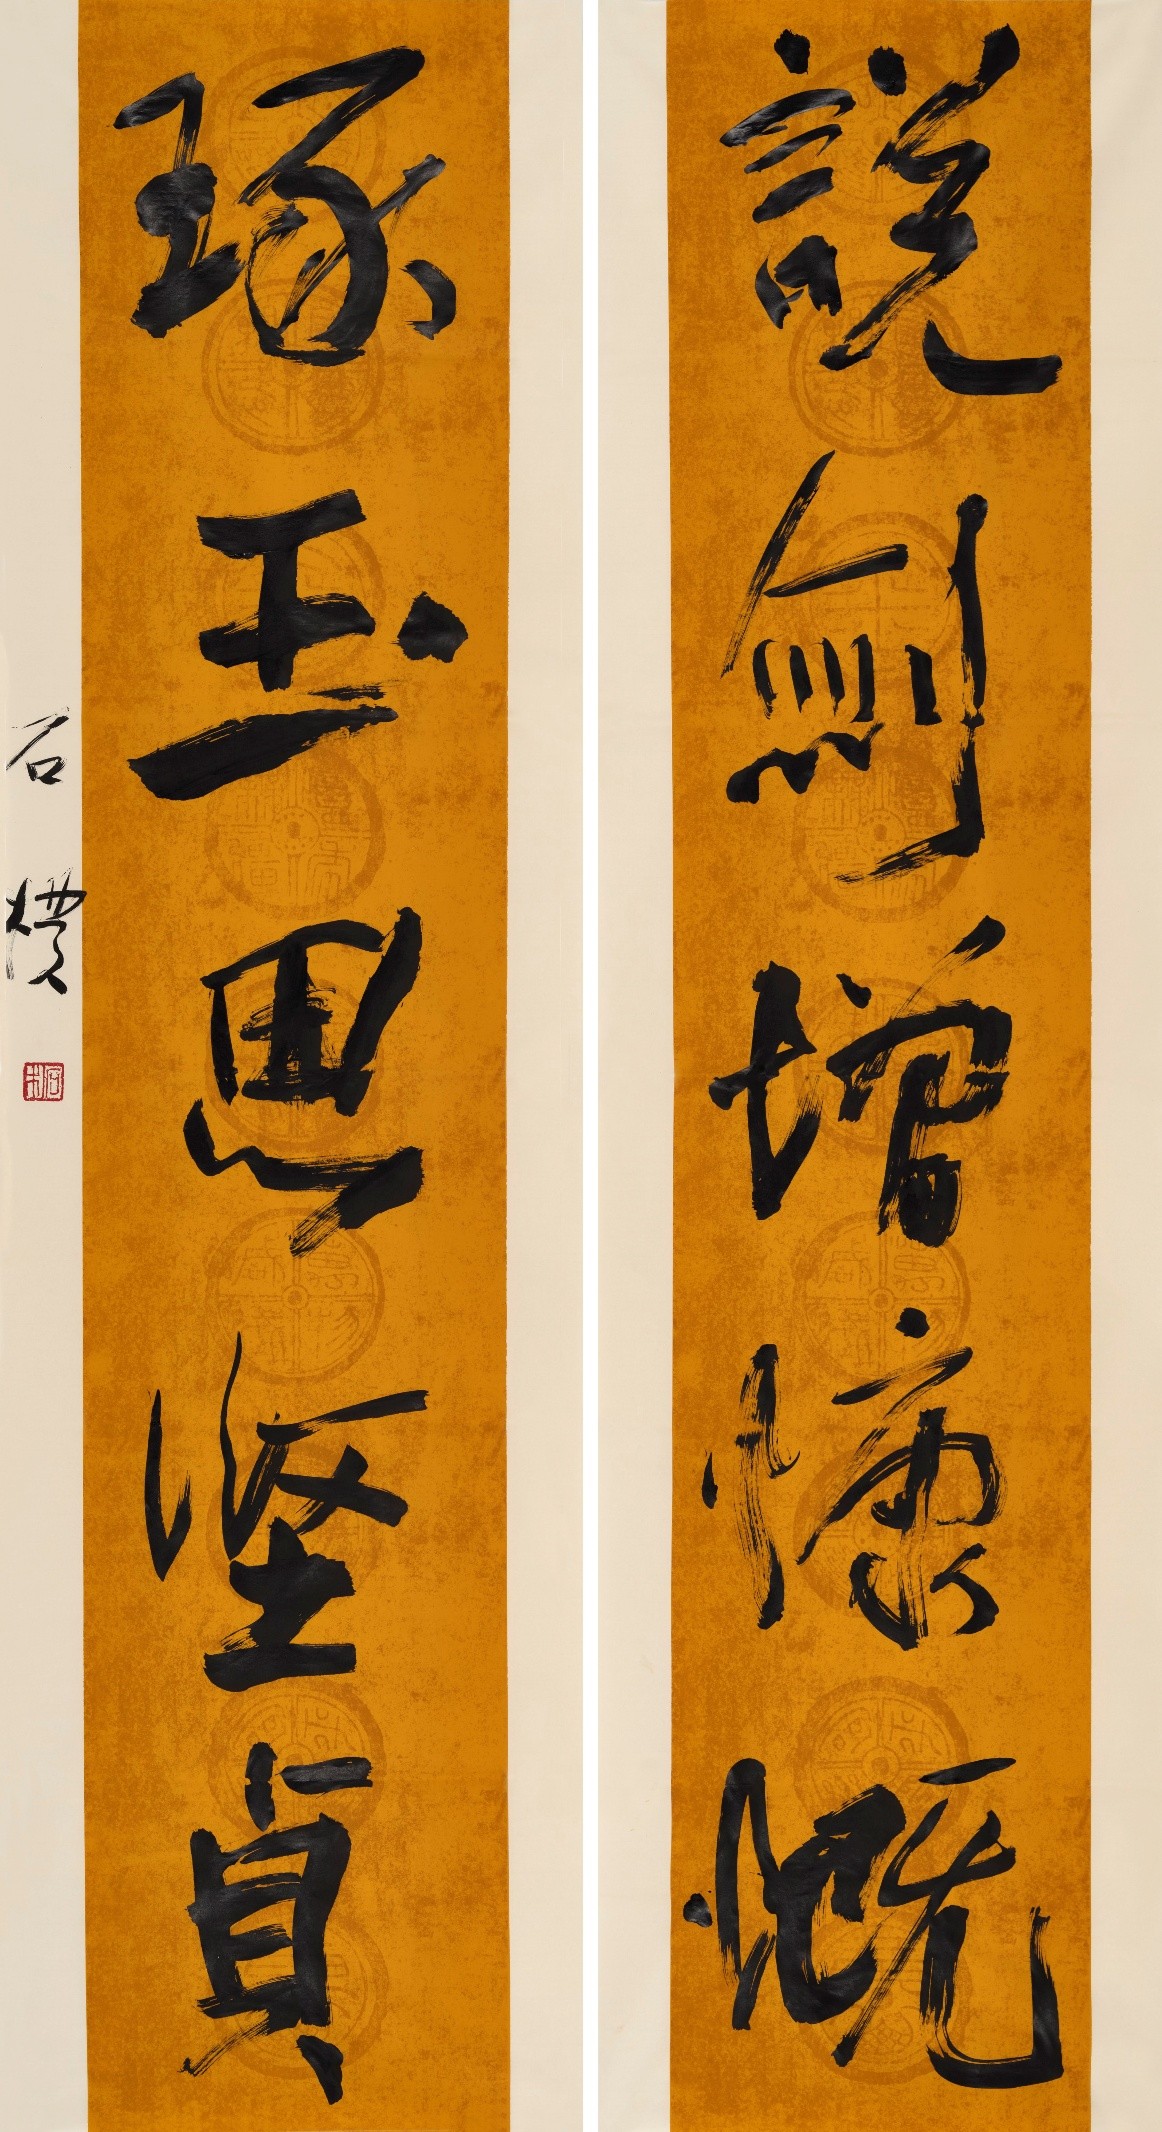 說劍增慷慨
琢玉思堅貞
石